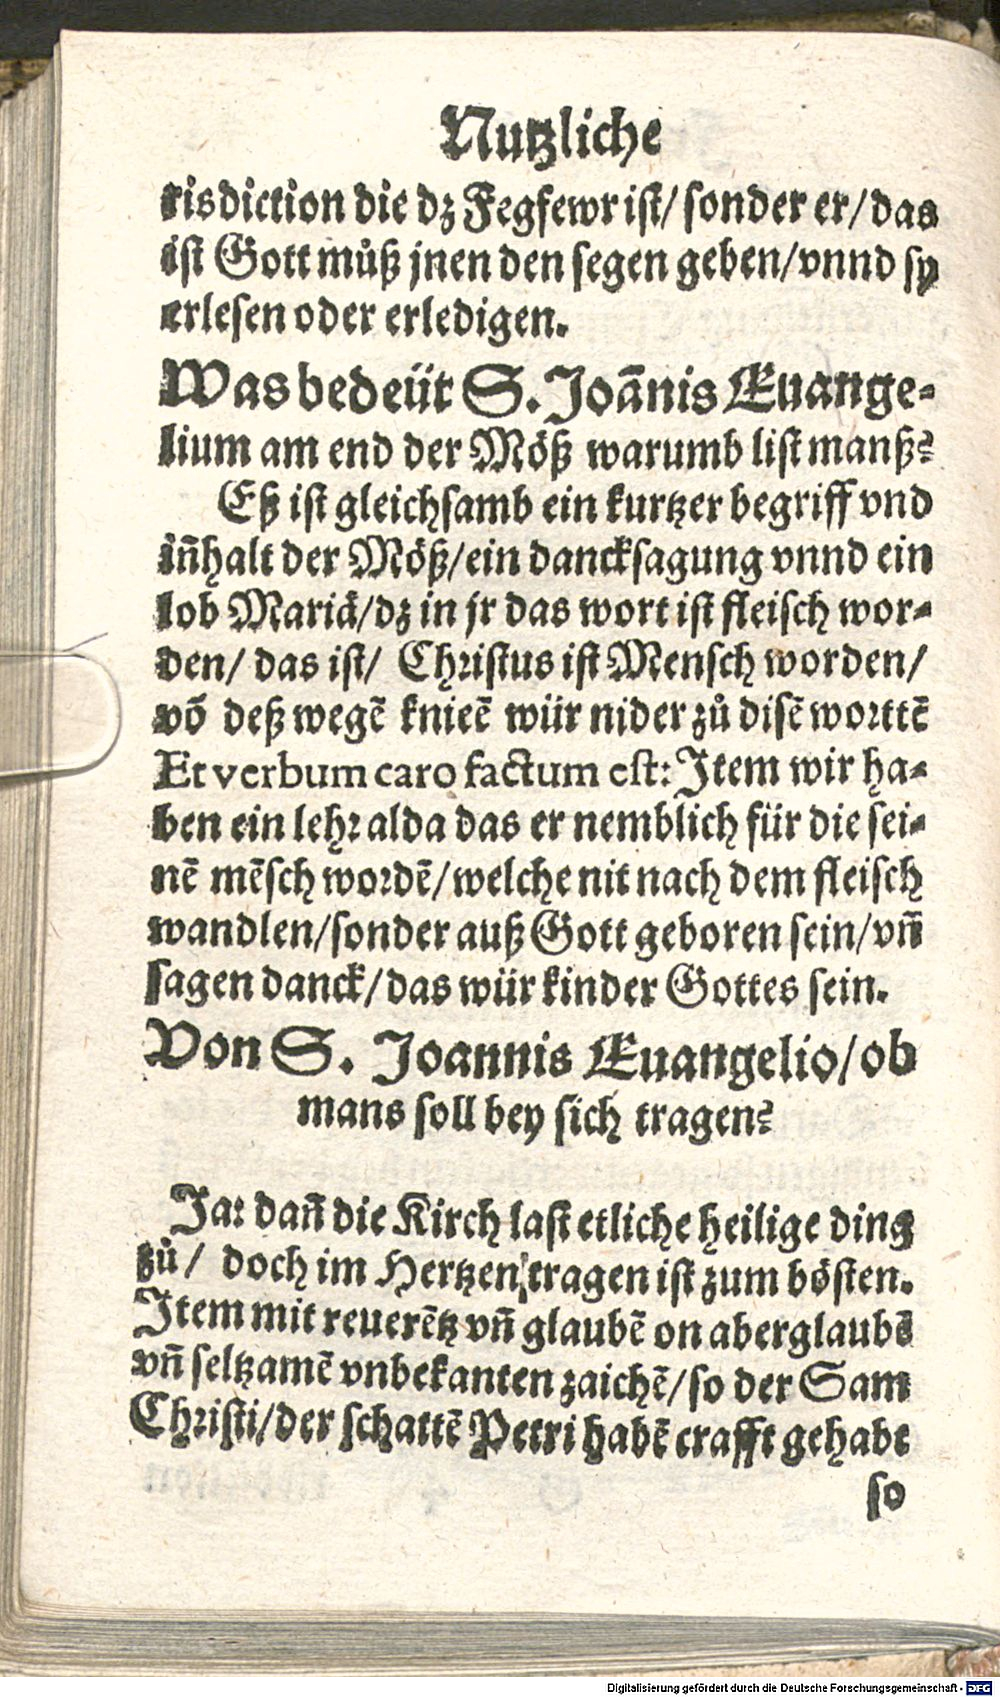 Nutzliche
risdiction die dz Fegfewr ist/ sonder er/ das
ist Gott můß jnen den segen geben/ vnnd sy
erlesen oder erledigen.
Was bedeüt S. Joãnis Euange-
lium am end der Möß warumb list manß?
Eß ist gleichsamb ein kurtzer begriff vnd
iñhalt der Möß/ ein dancksagung vnnd ein
lob Mariä/ dz in jr das wort ist fleisch wor-
den/ das ist/ Christus ist Mensch worden/
võ deß wegẽ knieẽ wür nider zů disẽ worttẽ
Et verbum caro factum est: Item wir ha-
ben ein lehr alda das er nemblich für die sei-
nẽ mẽsch wordẽ/ welche nit nach dem fleisch
wandlen/ sonder auß Gott geboren sein/ vñ
sagen danck/ das wür kinder Gottes sein.
Von S. Joannis Euangelio/ ob
mans soll bey sich tragen?
Ja: dañ die Kirch last etliche heilige ding
zů/ doch im Hertzen tragen ist zum bösten.
Item mit reuerẽtz vñ glaubẽ on aberglaubẽ
vñ seltzamẽ vnbekanten zaichẽ/ so der Sam
Christi/ der schattẽ Petri habẽ crafft gehabt
so
Digitalisierung gefördert durch die Deutsche Forschungsgemeinschaft - DFG